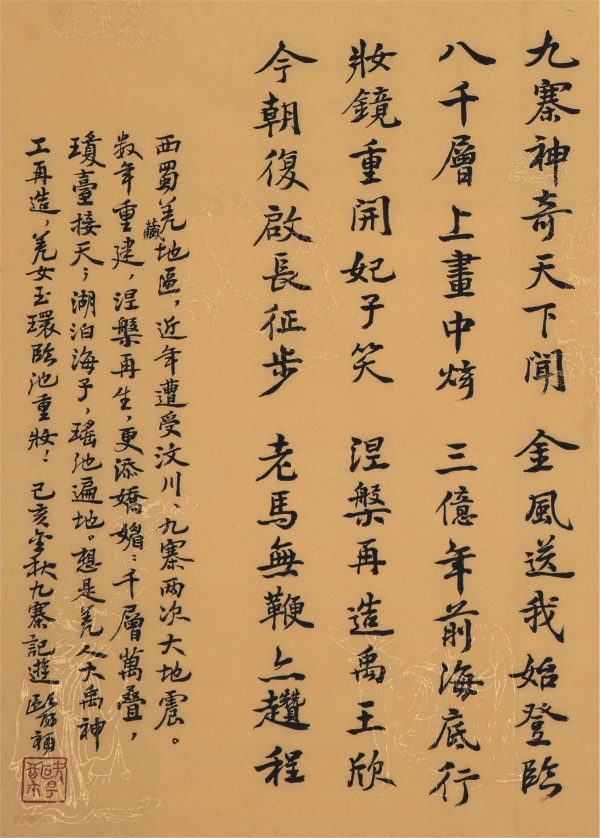 九寨神奇天下聞 金風送我始登臨
八千層上畫中 三億年前海底行
妝鏡重開妃子笑 涅槃再造禹王欣
今朝復啟長征步 老馬無鞭亦趲程
西蜀羌藏地區，近年遭受汶川、九寨兩次大地震。
数年重建，涅槃再生，更添嬌媚：千層萬疊，
瓊臺接天；湖泊海子，瑤池遍地。想是羌人大禹神
工再造，羌女玉環臨池重妝！己亥金秋九寨記遊